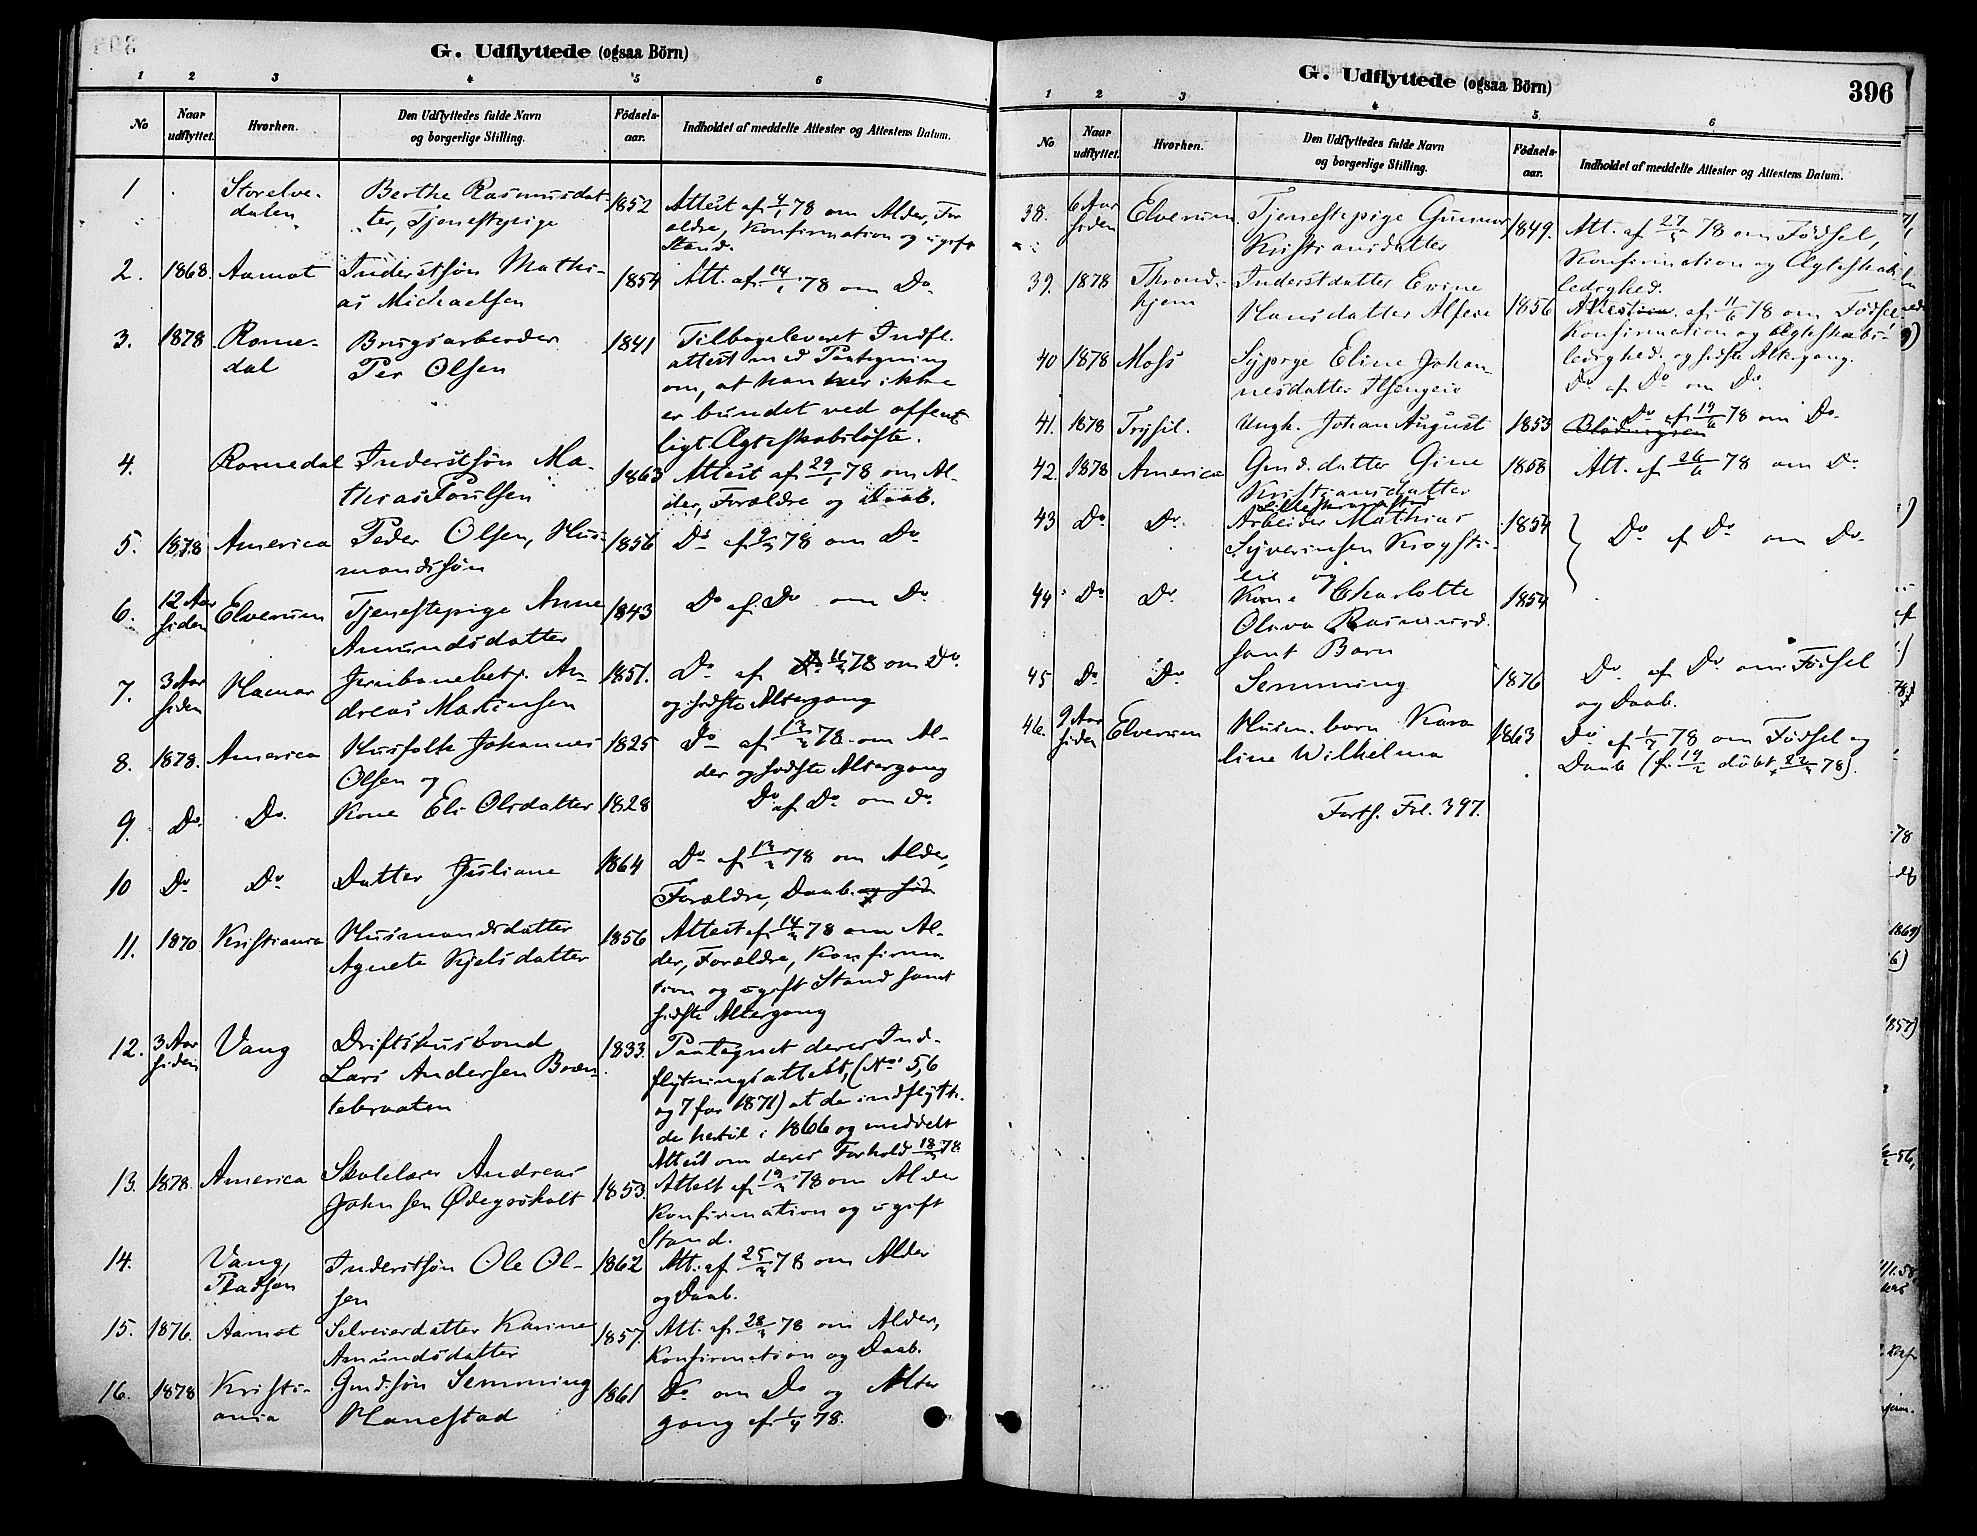 G. Udflyttede (ogsaa Börn)
1 2 3 4 5 6
No
Naar udflyttet.
Hvorhen.
Den Udflyttedes fulde Navn og borgerlige Stilling.
Födsels-aar.
Indholdet af meddelte Attester og Attestens Datum.
1 Storelve- Berthe Rasmusdat- 1852 Attest af 4/1 78 om Alder, For
dalen ter, Tjenestepige ældre, Konfirmation og ugift
Stand.
2. 1868. Aamot Inderstsøn Mathi- 1854 Att. af 14/1 78 om Do.
as Michaelsen
3. 1878. Rome- Brugsarbeider 1841 Tilbageleveret Indfl.
dal Per Olsen attest med Paategning
om, at han her ikke
er bundet ved offent
ligt Ægteskabsløfte.
4. Romedal Inderstsøn Ma- 1863 Attest af 29/1 78 om Al-
thias Poulsen der, Forældre og Daab.
5. 1878 America Peder Olsen, Hus- 1856 Do af 9/2 78 om Do
mandssøn
6. 12 Aar Elverum Tjenestepige Anne 1843 Do af Do om Do
siden Amundsdatter
7. 3 Aar Hamar Jernbanebetj. An- 1851. Do af 11/2 78 om Do.
siden dreas Martinsen og sidste Altergang
8. 1878. America Husfolk Johannes 1825 Do af 13/2 78 om Al-
Olsen og der og sidste Altergang
9. Do. Do. Kone Eli Olsdatter 1828 Do af Do om do
10 Do Do Datter Juliane 1864 Do af 13/2 78 om Alder,
Forældre, Daab. og sid.
11. 1870 Kristiania Husmandsdatter 1856 Attest af 14/2 78 om Al-
Agnete Kjelsdatter der, Forældre, Konfirma
tion og ugift Stand samt
sidste Altergang
12. 3 Aar Vang Driftshusbond 1833. Paategnet deres Ind-
siden Lars Andersen Bræn- flytningsattest, (No 5,6
tebraaten og 7 for 1871) at de indflytte-
de hertil i 1866 og meddelt
Attest om deres Forhold 18/2 78
13. 1878. America Skolelærer Andreas 1853. Attest af 19/2 78 om Alder
Johnsen Ødegsskalt Konfirmation og ugift
Stand.
14. Vang, Inderstsøn Ole Ol- 1862 Att. af 25/2 78 om Alder
sen og Daab.
15. 1876. Aamot Selveierdatter Karine 1857. Att. af 28/2 78 om Alder,
Amundsdatter Konfirmation og Daab.
16. 1878 Kristi- Gmdsøn Semming 1861 Do om Do og Alter
ania Hanestad gang af 1/4 78.
G. Udflyttede (ogsaa Börn)
396
1 2 3 4 5 6
No
Naar udflyttet.
Hvorhen.
Den Udflyttedes fulde Navn og borgerlige Stilling.
Födsels-aar.
Indholdet af meddelte Attester og Attestens Datum.
38. 6 Aar Elverum Tjenestepige Gunnor 1849. Att. af 27/5 78 om Fødsel,
siden Kristiansdatter Konfirmation og Ægteskabs
ledighed.
39. 1878 Thrond- Inderstdatter Evine 1856 Attestin af 11/6 78 om Fødsel
hjem Hansdatter Konfirmation og Ægteskabs-
ledighed og sidste Altergang.
40 1878 Moss Sypige Eline Johan- Do af Do om Do.
nesdatter
41. 1878 Trysil. Ungk. Johan August 1853 Do af 19/6 78 om Do.
42. 1878 America Gmd. datter Gine 1858 Att. af 26/6 78 om Do
Kristiansdatter
43 Do Do. Arbeider Mathias 1854 Do af Do om Do.
Syverinsen
og
44 Do Do. Kone Charlotte 1854
Oliva Rasmusd.
samt Barn
45 Do Do Semming 1876 Do. af Do om Fødsel
og Daab.
46. 9 Aar Elverum Husm. barn Karo 1863 Do af 1/7 78 om Fødsel og
siden line Wilhelma Daab
Forts. Fol. 397.